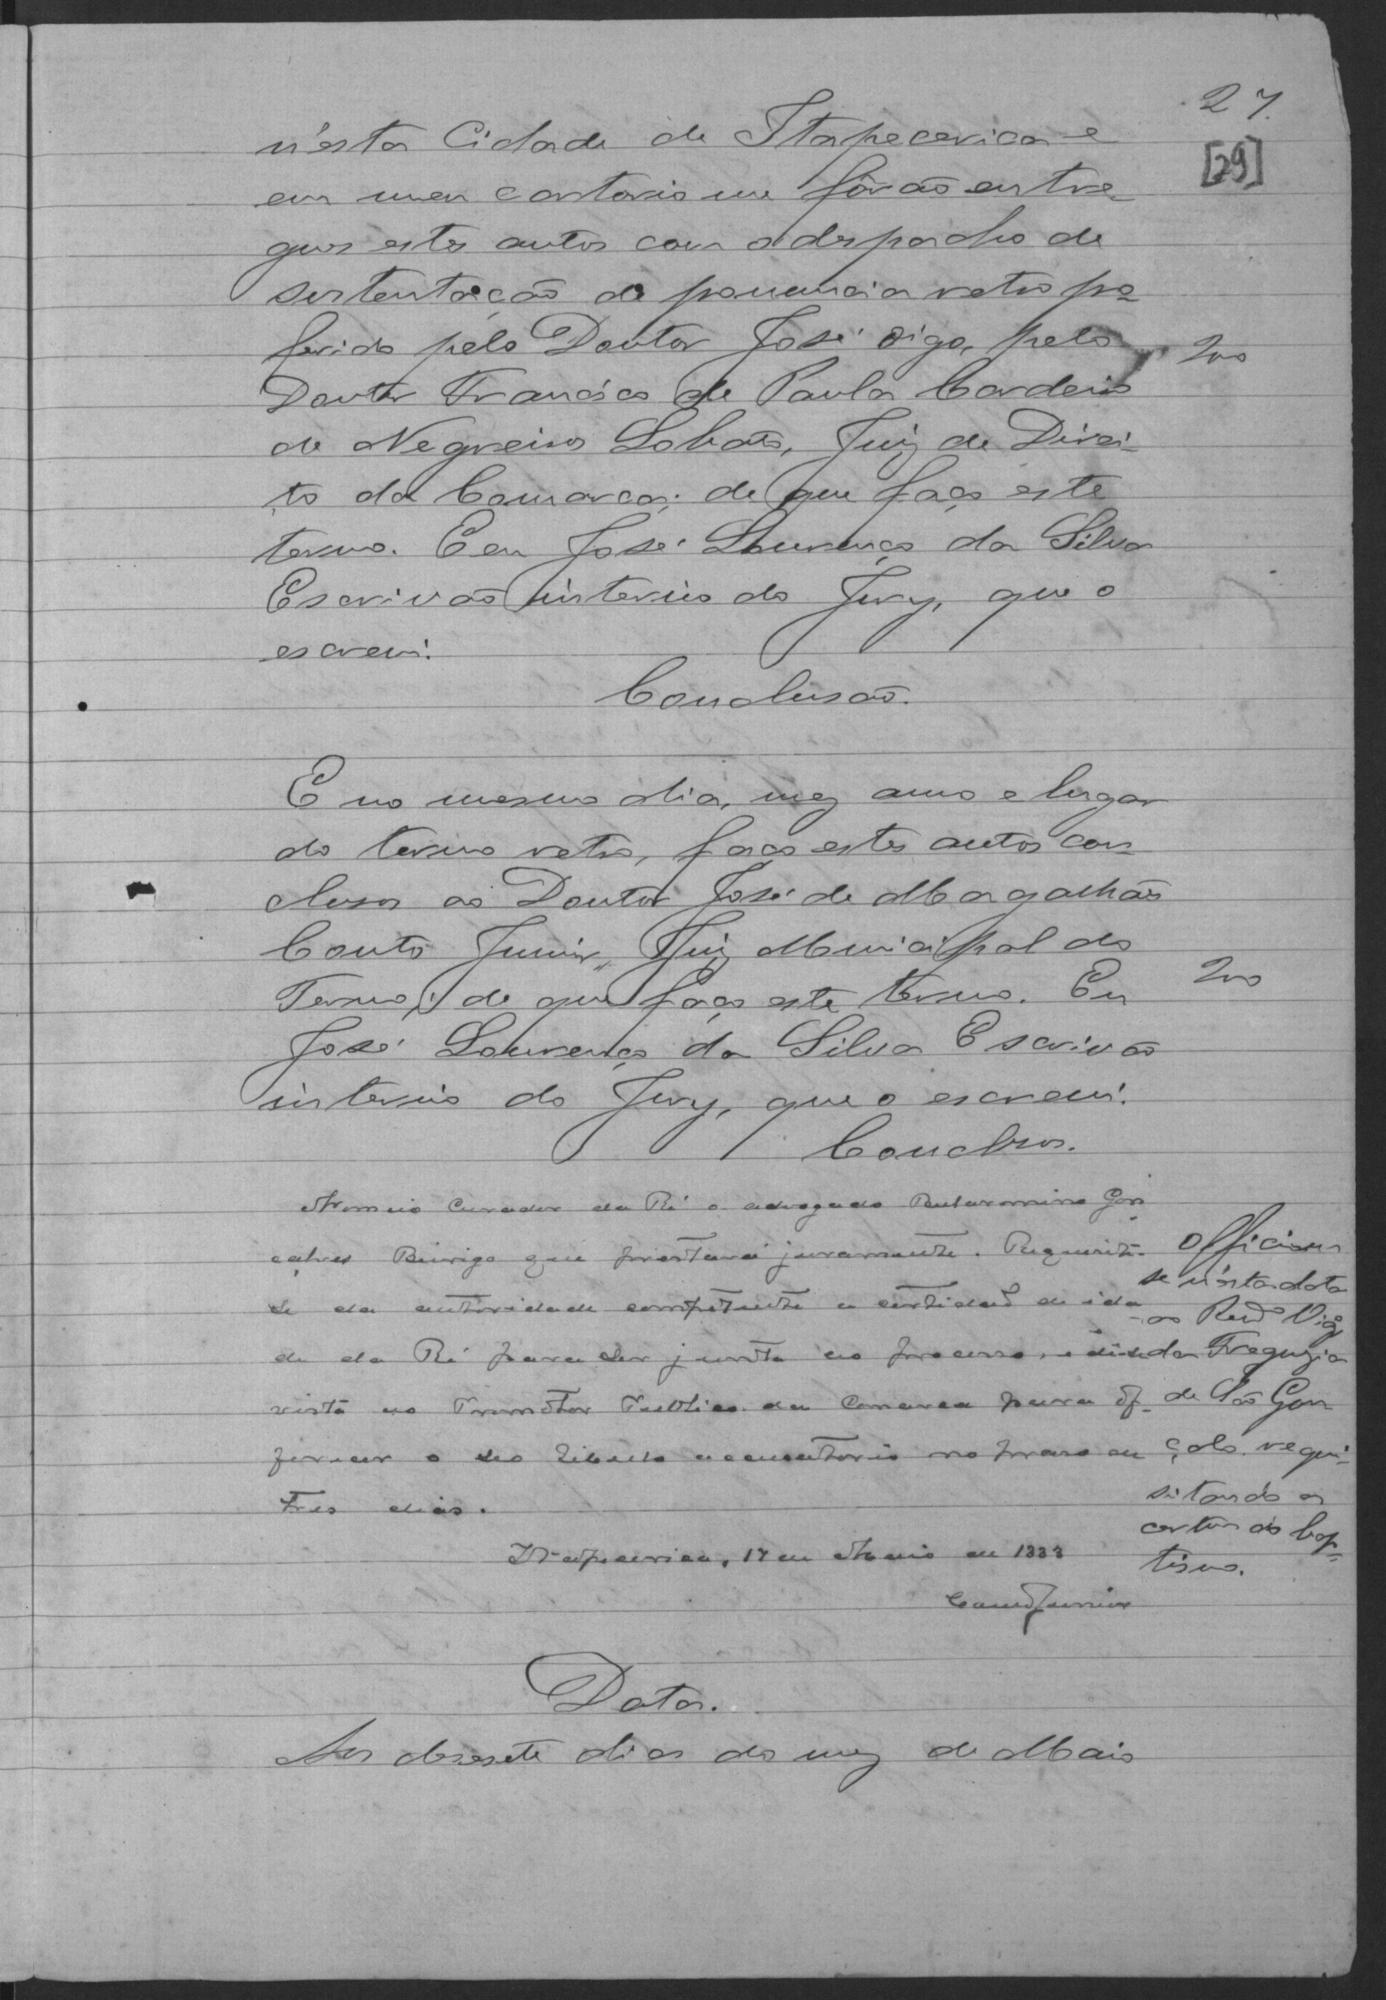 27.
[29]
n'esta Cidade de Itapecerica e
em meu cartorio me forão entre-
gues estes autos com o despacho de
sustentação de pronuncia retro pro-
ferido pelo Doutor José digo, pelo
200
Doutor Francisco de Paula Cordeiro
de Negreiros Lobato, Juiz de Direi-
to da Comarca; de que faço este
termo. E eu José Lourenço da Silva
Escrivão interino do Jury, que o
escrevi.
Conclusão.
E no mesmo dia, mez anno e lugar
do termo retro, faço estes autos con-
clusos ao Doutor José de Magalhães
Couto Junior, Juiz Municipal do
Termo; de que faço este termo. Eu
200
José Lourenço da Silva Escrivão
interino do Jury, que o escrevi.
Conclusos.
Nomeio Curador da Ré o advogado Gon
çalves que prestará juramento. Requisite-
se da autoridade competente a certidão de ida
de da Ré para ser junta ao processo, e
vista ao Promotor Publico da Comarca para of-
ferecer o seo libello accusatorio no praso de
tres dias.
Itapecerica, 17 de Maio de 1888
Couto Junior
Officiou
se n'esta data
ao Revdo Vigº
da Freguzia
de São Gon
çalo requi-
sitando a
certidão de bap-
tismo.
Data.
Aos desesete dias do mez de Maio